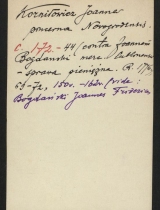 Kornitowicz Joanne
pincerna Novogrodensis.
C. 172. - 44 (contra Joannem
Bogdanski
- sprawa pieniężna. R. 1776.
51-72, 150v. - 160v (vide:
Bogdański Joannes Fridericus